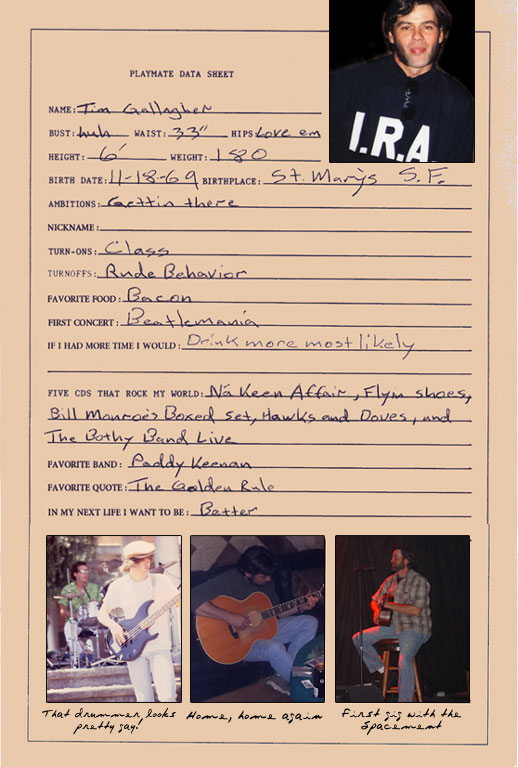 I.R.A.
PLAYMATE DATA SHEET
NAME: Tim Gallagher
BUST: huh WAIST: 33" HIPS Love em
HEIGHT: 6' WEIGHT: 180
BIRTH DATE: 11-18-69 BIRTHPLACE: St. Mary's S.F.
AMBITIONS: Gettin there
NICKNAME:
TURN-ONS: Class
TURNOFFS: Rude Behavior
FAVORITE FOOD: Bacon
FIRST CONCERT: Beatlemania
IF I HAD MORE TIME I WOULD: Drink more most likely
FIVE CDS THAT ROCK MY WORLD: Na Keen Affair, Flyin shoes,
Bill Monroe's Boxed set, Hawks and Doves, and
The Bothy Band Live
FAVORITE BAND: Paddy Keenan
FAVORITE QUOTE: The Golden Rule
IN MY NEXT LIFE I WANT TO BE: Better
That drummer looks
pretty gay!
Home, home again
First gig with the
Spacement